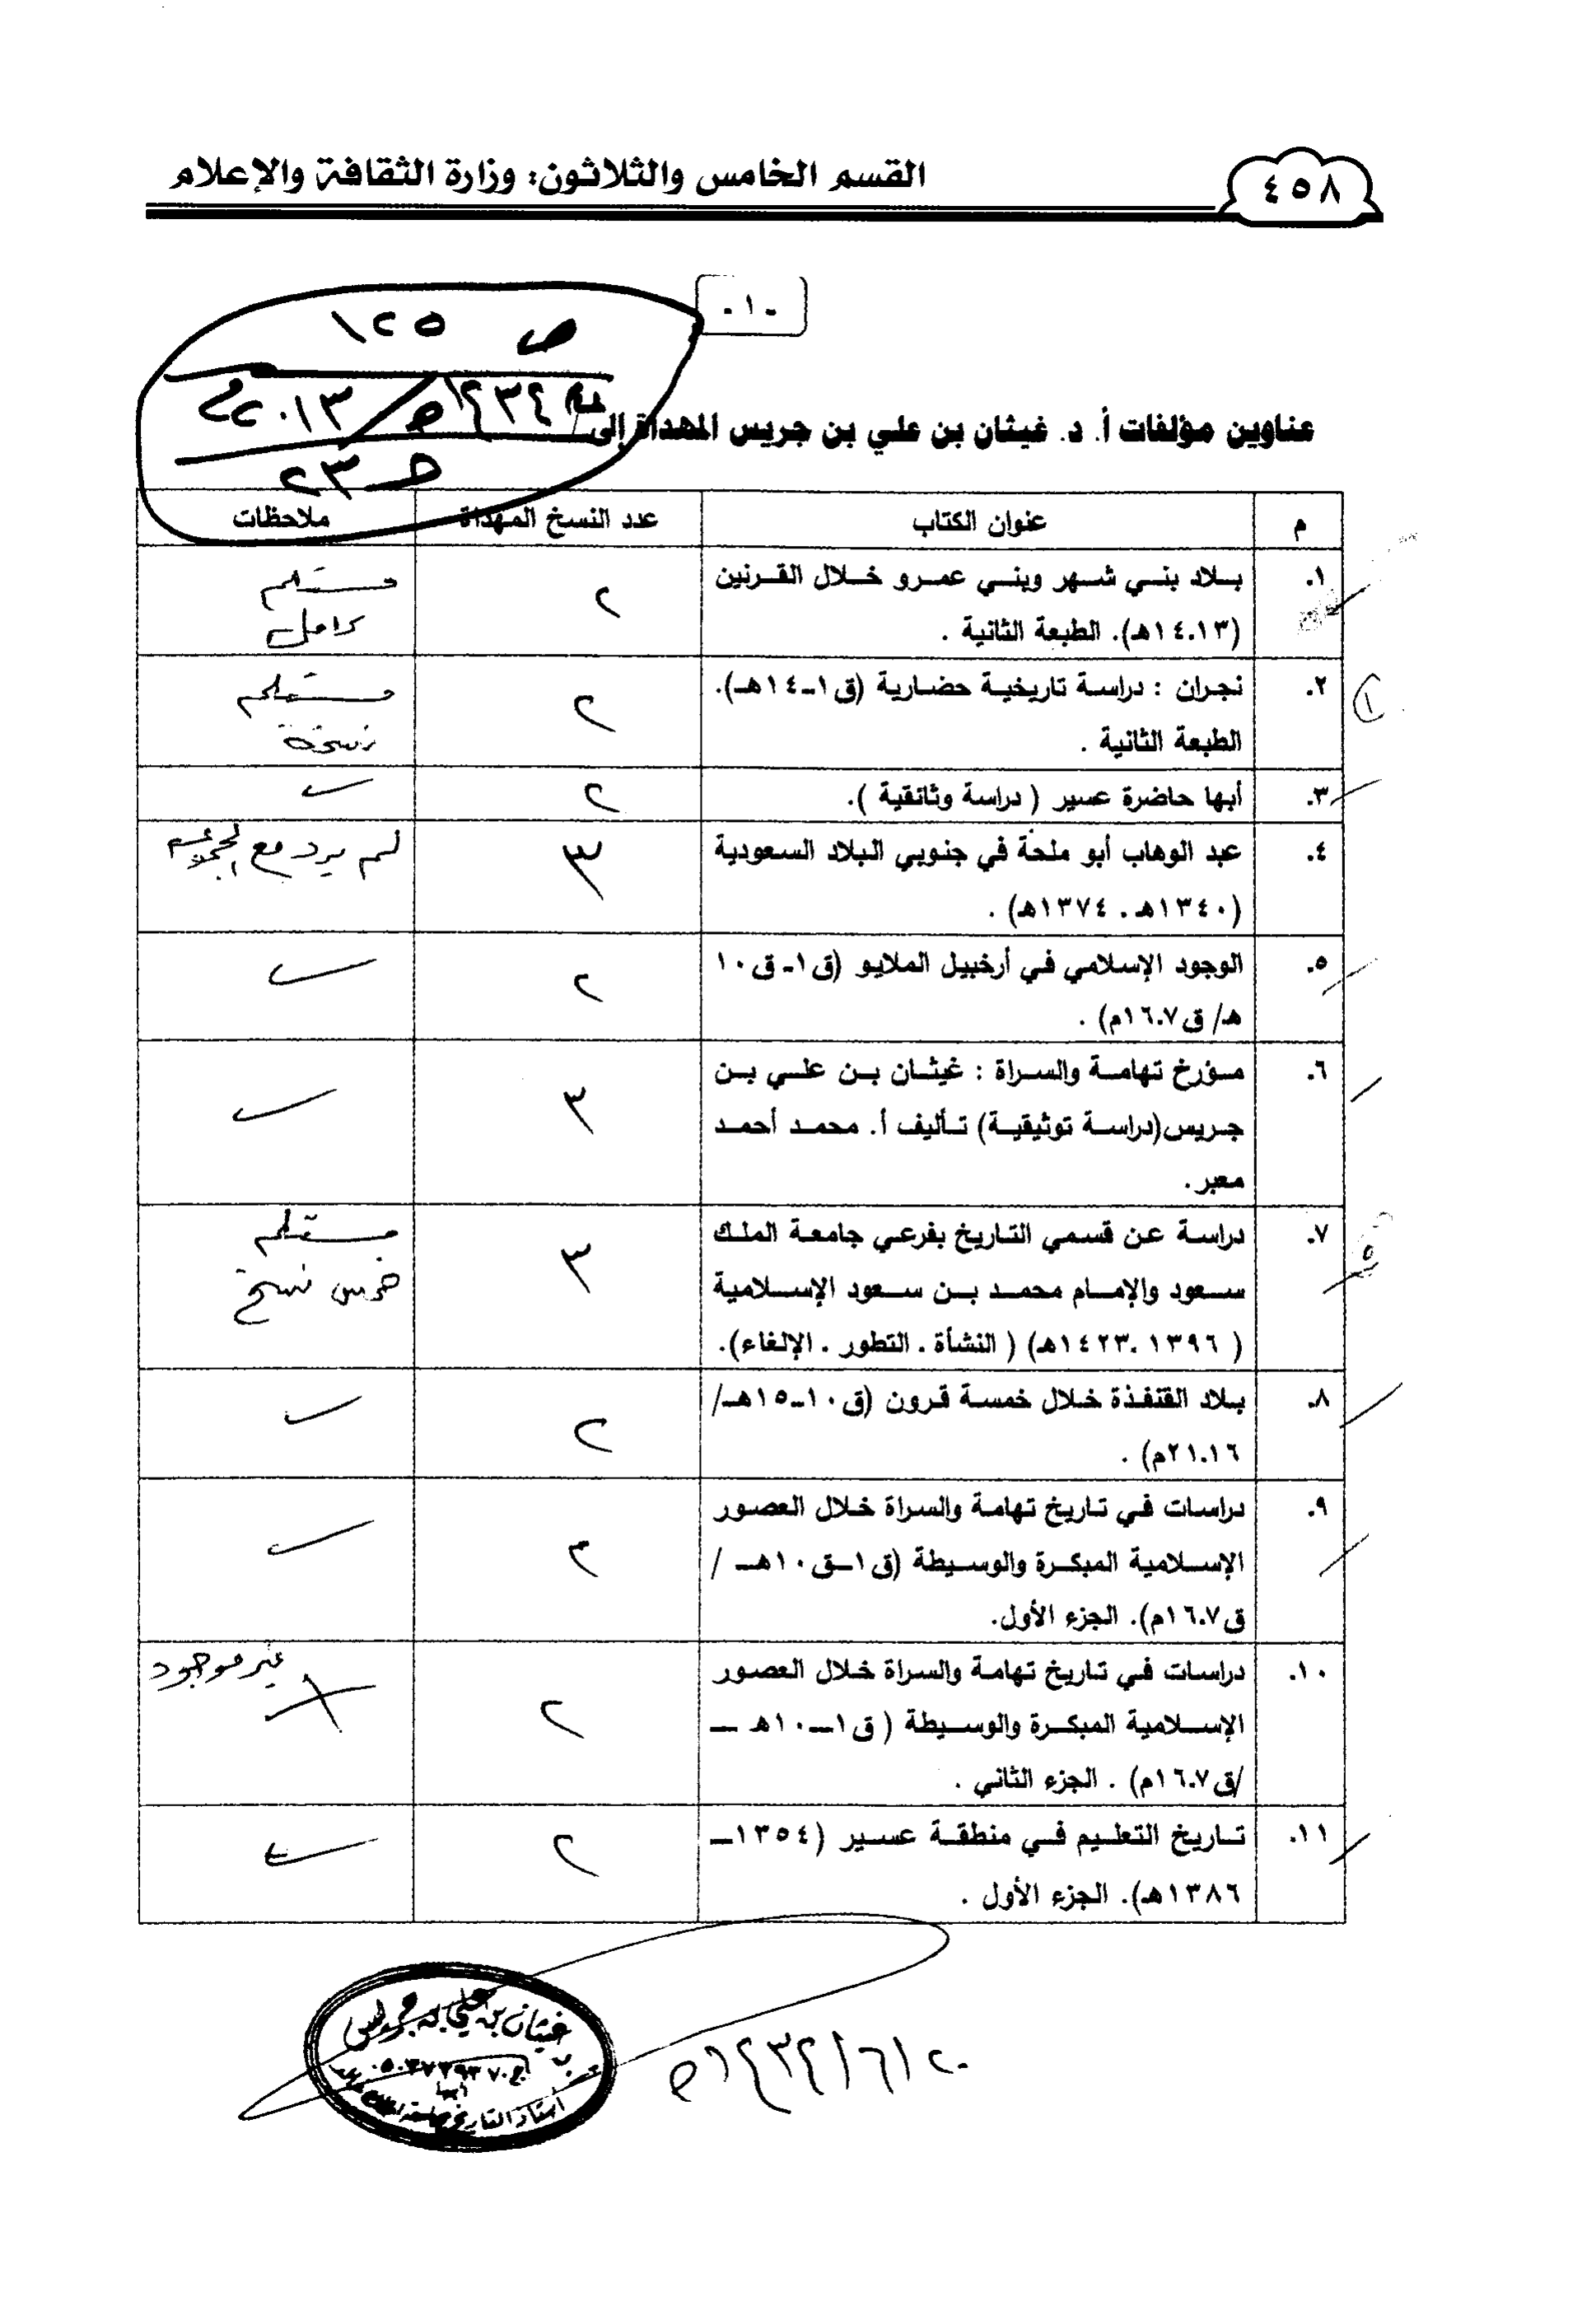 ٤٥٨
القسم الخامس والثلاثون: وزارة الثقافة والإعلام
-١-
ص ١٢٥
١٤٣٤هـ / ٢٠١٣م
ح ٢٣
عناوين مؤلفات أ. د. غيثان بن علي بن جريس المهداة إلى
م
عنوان الكتاب
عدد النسخ المهداة
ملاحظات
١.
بلاد بني شهر وبني عمرو خلال القرنين
(١٤.١٣هـ). الطبعة الثانية .
٢
مستلم
كامل
٢.
نجران : دراسة تاريخية حضارية (ق١-١٤هـ).
الطبعة الثانية .
٢
مستلم
نسخة
١
٣.
أبها حاضرة عسير ( دراسة وثائقية ).
٢
٤.
عبد الوهاب أبو ملحة في جنوبي البلاد السعودية
(١٣٤٠هـ . ١٣٧٤هـ) .
٣
لم يرد مع المجموعة
٥.
الوجود الإسلامي في أرخبيل الملايو (ق١- ق١٠
هـ/ ق١٦.٧م) .
٢
٦.
مؤرخ تهامة والسراة : غيثان بن علي بن
جريس(دراسة توثيقية) تأليف أ. محمد أحمد
معبر.
٣
٧.
دراسة عن قسمي التاريخ بفرعي جامعة الملك
سعود والإمام محمد بن سعود الإسلامية
( ١٣٩٦ .١٤٢٣هـ) ( النشأة . التطور . الإلغاء).
٣
مستلم
خمس نسخ
٥
٨.
بلاد القنفذة خلال خمسة قرون (ق١٠-١٥هـ/
٢١.١٦م) .
٢
٩.
دراسات في تاريخ تهامة والسراة خلال العصور
الإسلامية المبكرة والوسيطة (ق١-ق١٠هـ /
ق١٦.٧م). الجزء الأول.
١٠.
دراسات في تاريخ تهامة والسراة خلال العصور
الإسلامية المبكرة والوسيطة ( ق١-١٠هـ -
/ق١٦.٧م) . الجزء الثاني .
٢
غير موجود
١١.
تاريخ التعليم في منطقة عسير (١٣٥٤-
١٣٨٦هـ). الجزء الأول .
٢
غيثان بن علي بن جريس
أبها
أستاذ التاريخ بجامعة الملك خالد